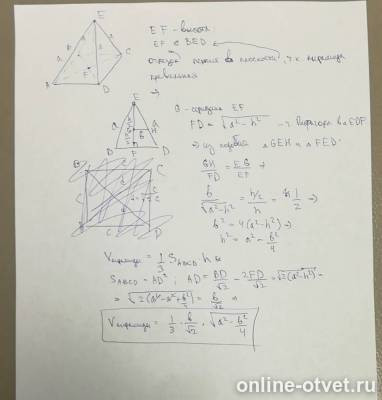 EF - высота
EF ∈ BED
отрезок лежит в плоскости, т.к. пирамида
правильная
⇒
G - середина EF
FD = √(a² - h²) - т. Пифагора в △EDF
⇒ из подобия △GEH и △FED:
GH/FD = EG/EF ⇒
b/√(a² - h²) = (h/2)/h = 1/2 ⇒
b² = 4(a² - h²) ⇒
h² = a² - b²/4
V пирамиды = 1/3 S_ABCD · h
S_ABCD = AD² ; AD = BD/√2 = 2FD/√2 = √(2(a² - h²)) =
= √(2(a² - a² + b²/4)) = b/√2 ⇒
V пирамиды = 1/3 · b/√2 · √(a² - b²/4)
online-otvet.ru